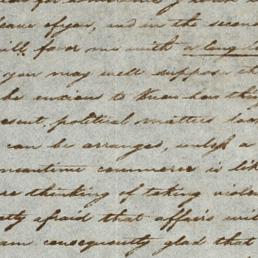 leave of you, and in the second
will favor me with a long l
you may well suppose th
be anxious to know how they
esent, political matters loo
can be arranged, unless a
meantime commerce is lik
re thinking of taking viole
etty afraid that affairs will
am consequently glad that